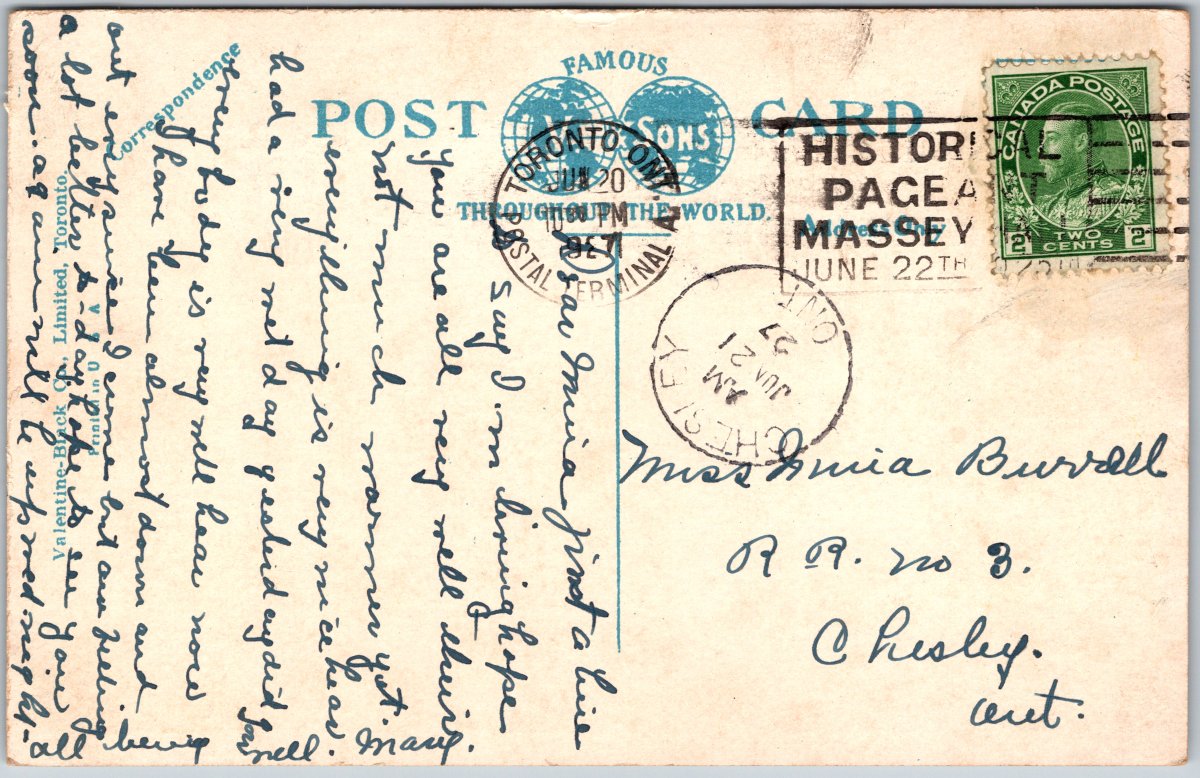 FAMOUS
POST CARD
& SONS
THROUGHOUT THE WORLD.
Correspondence
Address Only
Valentine-Black Co., Limited, Toronto.
Printed in U S A
TORONTO ONT.
JUN 20
PM
1927
POSTAL TERMINAL A
HISTORICAL
PAGEANT
MASSEY
JUNE 22TH
CANADA POSTAGE
2 TWO CENTS 2
CHESLEY
AM
JUN 21
27
ONT
Dear Mina just a line
to say I.m living hope
you are all very well there
not much warmer yet. Mary.
everything is very nice hear
had a very wet day yesterday did you
every body is very well hear now
I have been almost down and
out ever since I come but am feeling
a lot better to-day hope to see you
soon. again will be up wed night - all
being well.
Miss Mina Burrell
R R. no 3.
Chesley.
Ont.